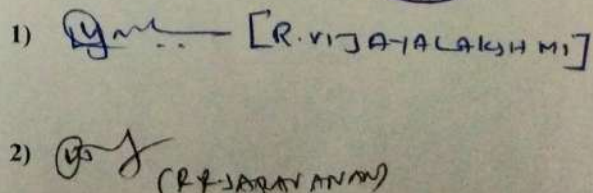 1) [R. VIJAYALAKSHMI]
2)
(R R. SARAVANAN)